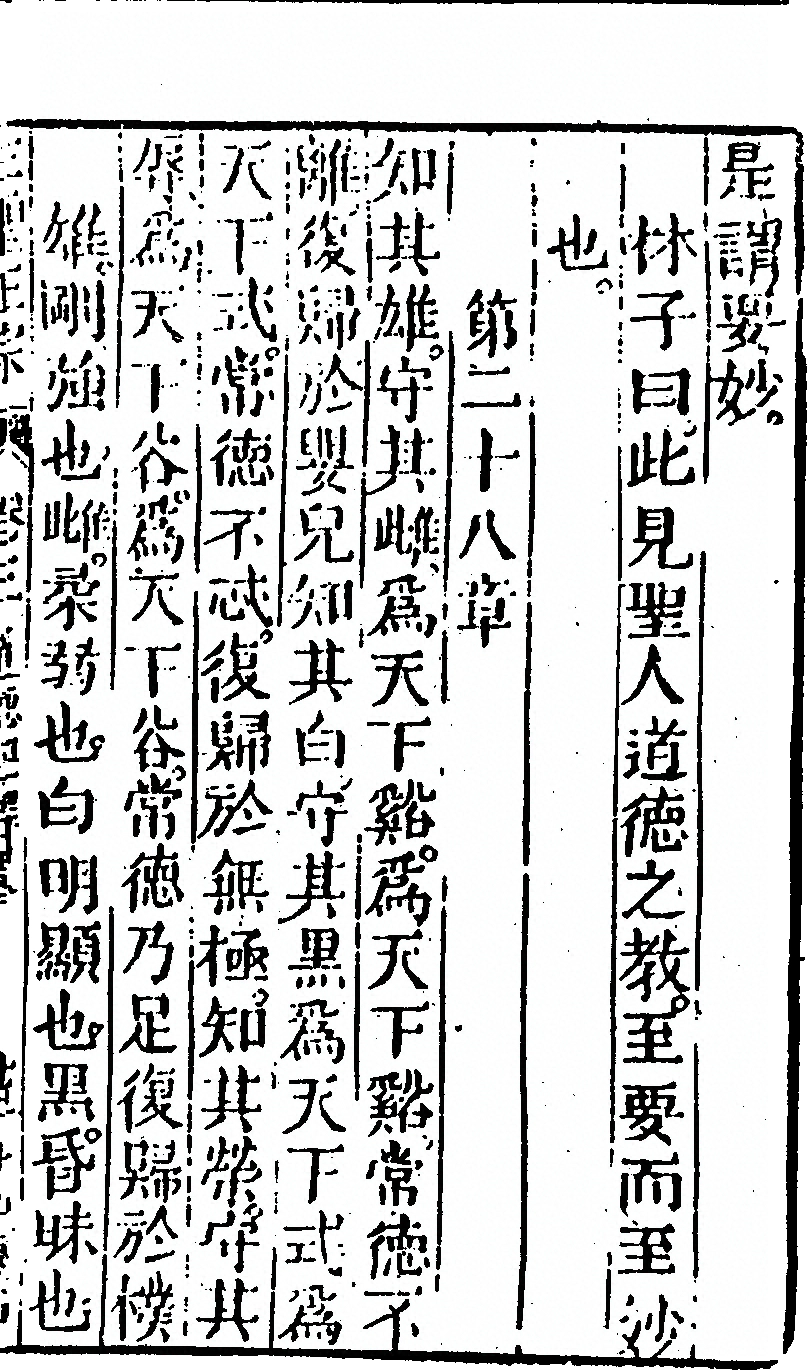 是謂要妙。
林子曰此見聖人道德之教。至要而至妙
也。
第二十八章
知其雄。守其雌、爲天下谿。爲天下谿、常德不
離、復歸於嬰兒知其白、守其黑爲天下式爲
天下式。常德不忒。復歸於無極。知其榮。守其
辱、爲天下谷。爲天下谷。常德乃足復歸於樸
雄。剛强也、雌。柔弱也。白明顯也。黑。昏昧也